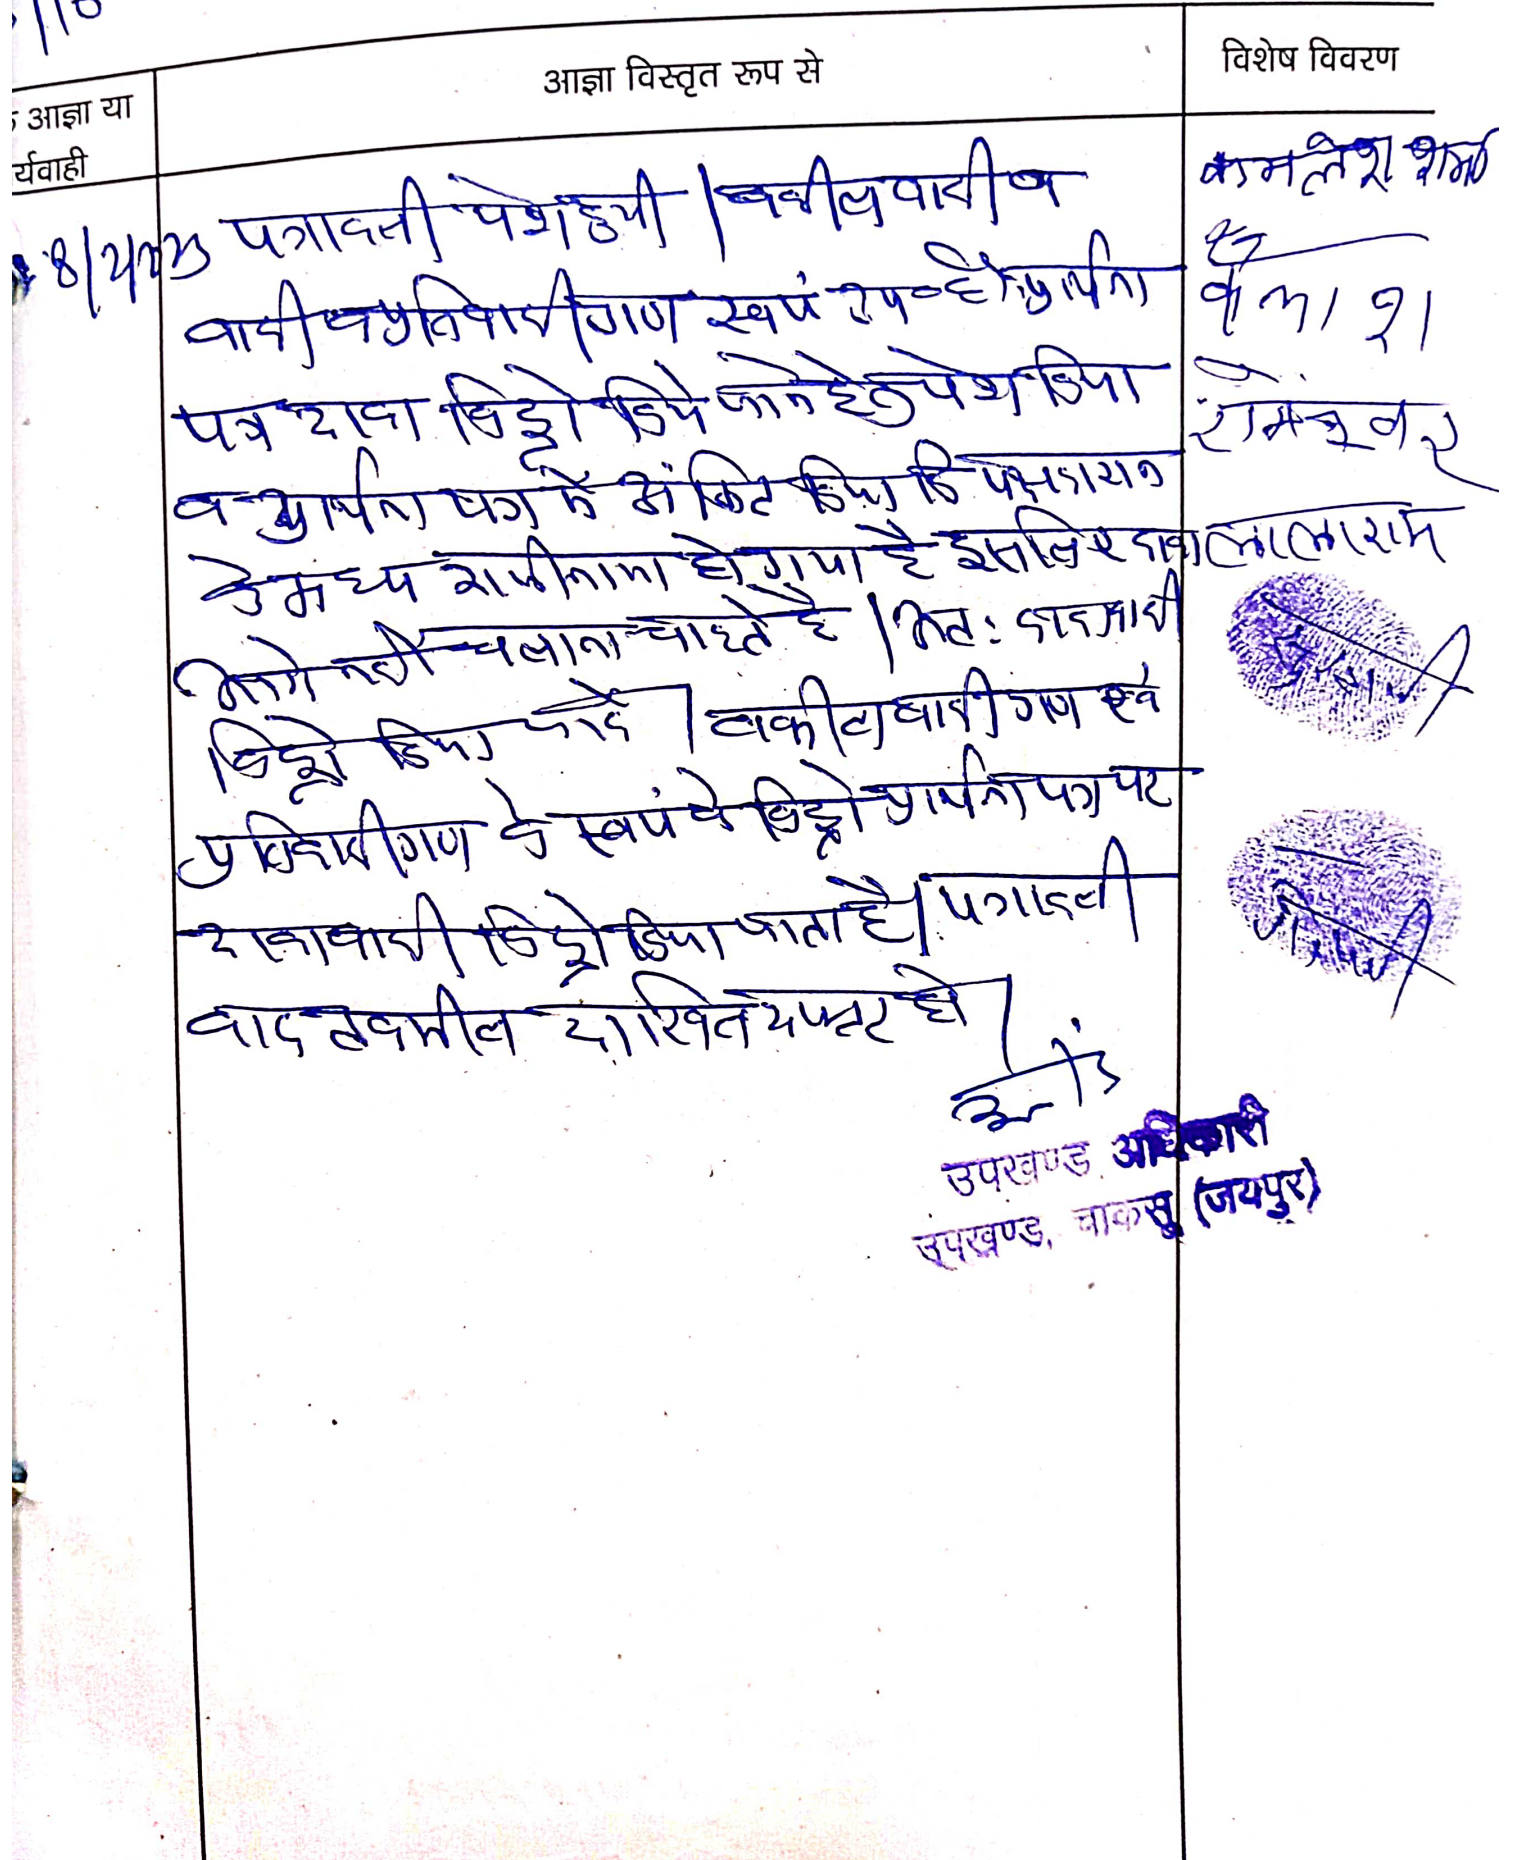 आज्ञा विस्तृत रूप से
विशेष विवरण
आज्ञा या
र्यवाही
पत्रावली पेश हुयी । वकील वादी व
वादी व प्रतिवादीगण स्वयं उप० है। प्रार्थना
पत्र दावा विड्रो किये जाने हेतु पेश किया
व प्रार्थना पत्र में अंकित किया कि पक्षकारान
के मध्य राजीनामा हो गया है इसलिए दावा
आगे नहीं चलाना चाहते है । अतः दावा वादी
विड्रो किया जावे । वकील वादीगण एवं
प्रतिवादीगण के स्वयं के विड्रो प्रार्थना पत्र पर
दावा वादी विड्रो किया जाता है। पत्रावली
बाद तकमील दाखिल दफ्तर हो ।
उपखण्ड अधिकारी
उपखण्ड, चाकसू (जयपुर)
कमलेश शर्मा
कैलाश
लालाराम